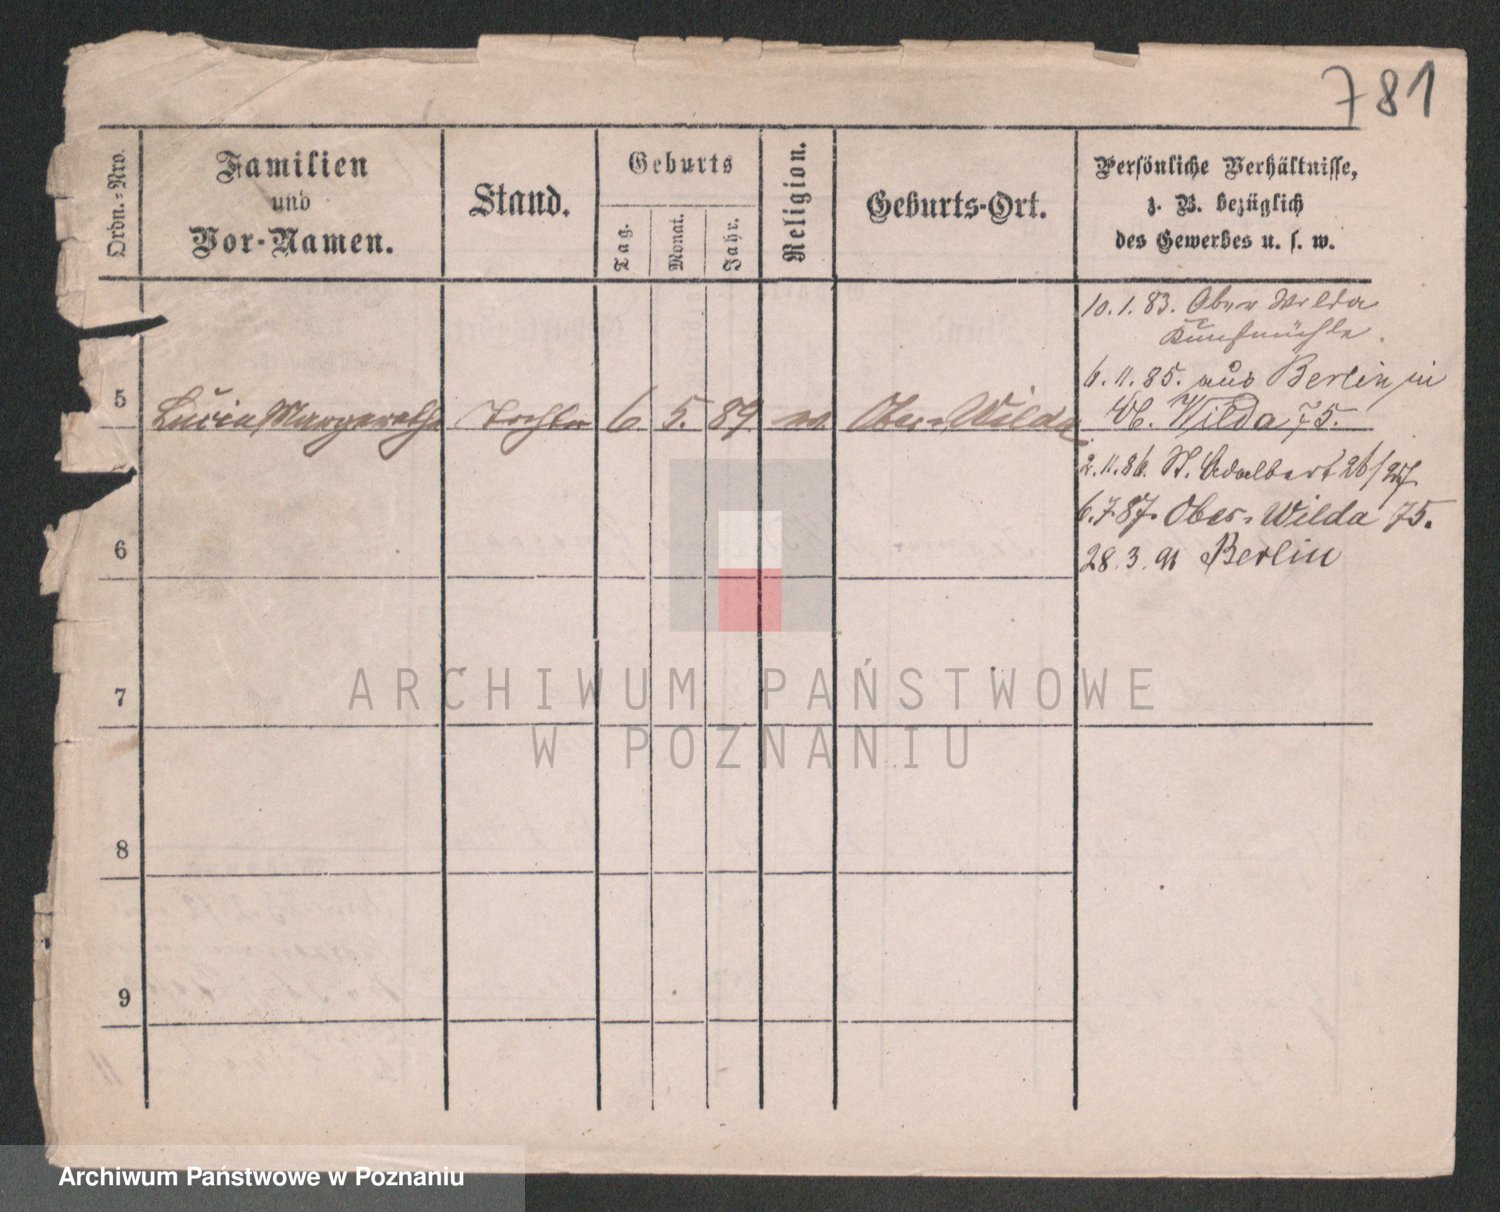 781
Ordn.-Nro.
Familien
und
Vor-Namen.
Stand.
Geburts
Tag.
Monat.
Jahr.
Religion.
Geburts-Ort.
Persönliche Verhältnisse,
z. B. bezüglich
des Gewerbes u. s. w.
10. 1. 83. Ober Wilda
Kunstmühle.
6. 11. 85. aus Berlin in
Wilda 75.
5 Lucia Margarethe Tochter 6. 5. 89. Ober-Wilda
2. 11. 86. St. Adalbert 26/27
6. 7. 87. Ober-Wilda 75.
6
28. 3. 91 Berlin
7
8
9
ARCHIWUM PAŃSTWOWE
W POZNANIU
Archiwum Państwowe w Poznaniu